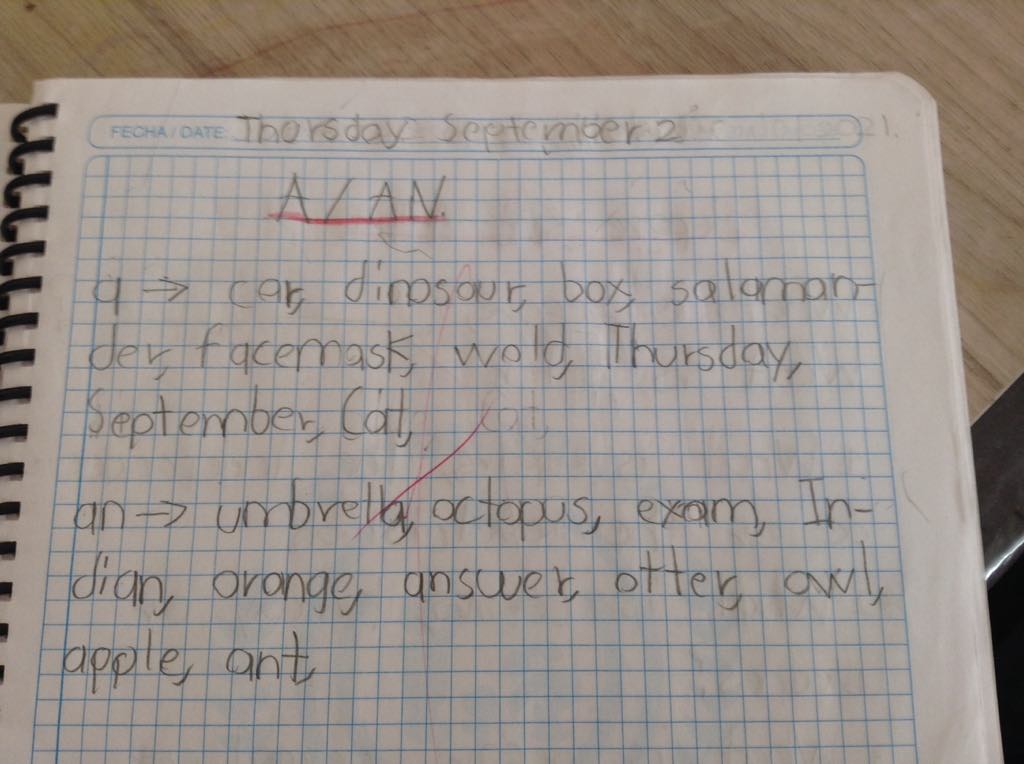 FECHA / DATE: Thorsday September 2 21.
A / AN.
a → car, dinosaur, box, salaman-
der, facemask, wold, Thursday,
September, Cat,
an → umbrella, octopus, exam, In-
dian, orange, answer, otter, owl,
apple, ant,